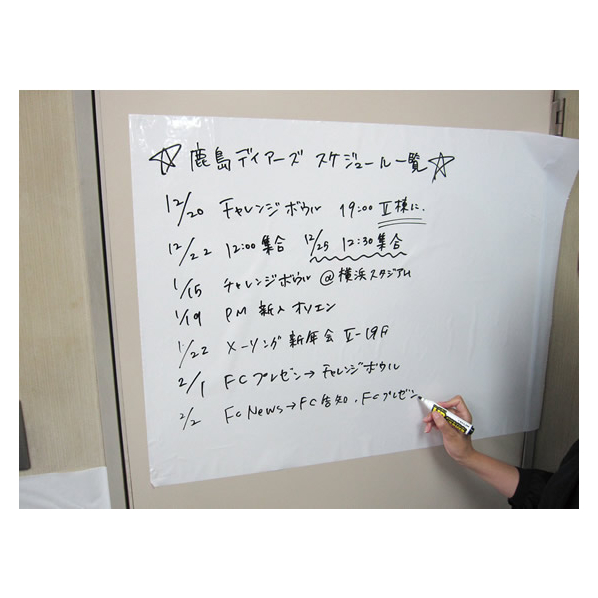 ☆鹿島ディアーズ スケジュール一覧☆
12/20 チャレンジボウル 19:00 Ⅱ様に.
12/22 12:00集合 12/25 12:30集合
1/15 チャレンジボウル @横浜スタジアム
1/19 PM 新人オリエン
1/22 メーリング新年会 Ⅱ-19F
2/1 FCプレゼン→チャレンジボウル
2/2 FC News→FC告知、FCプレゼン